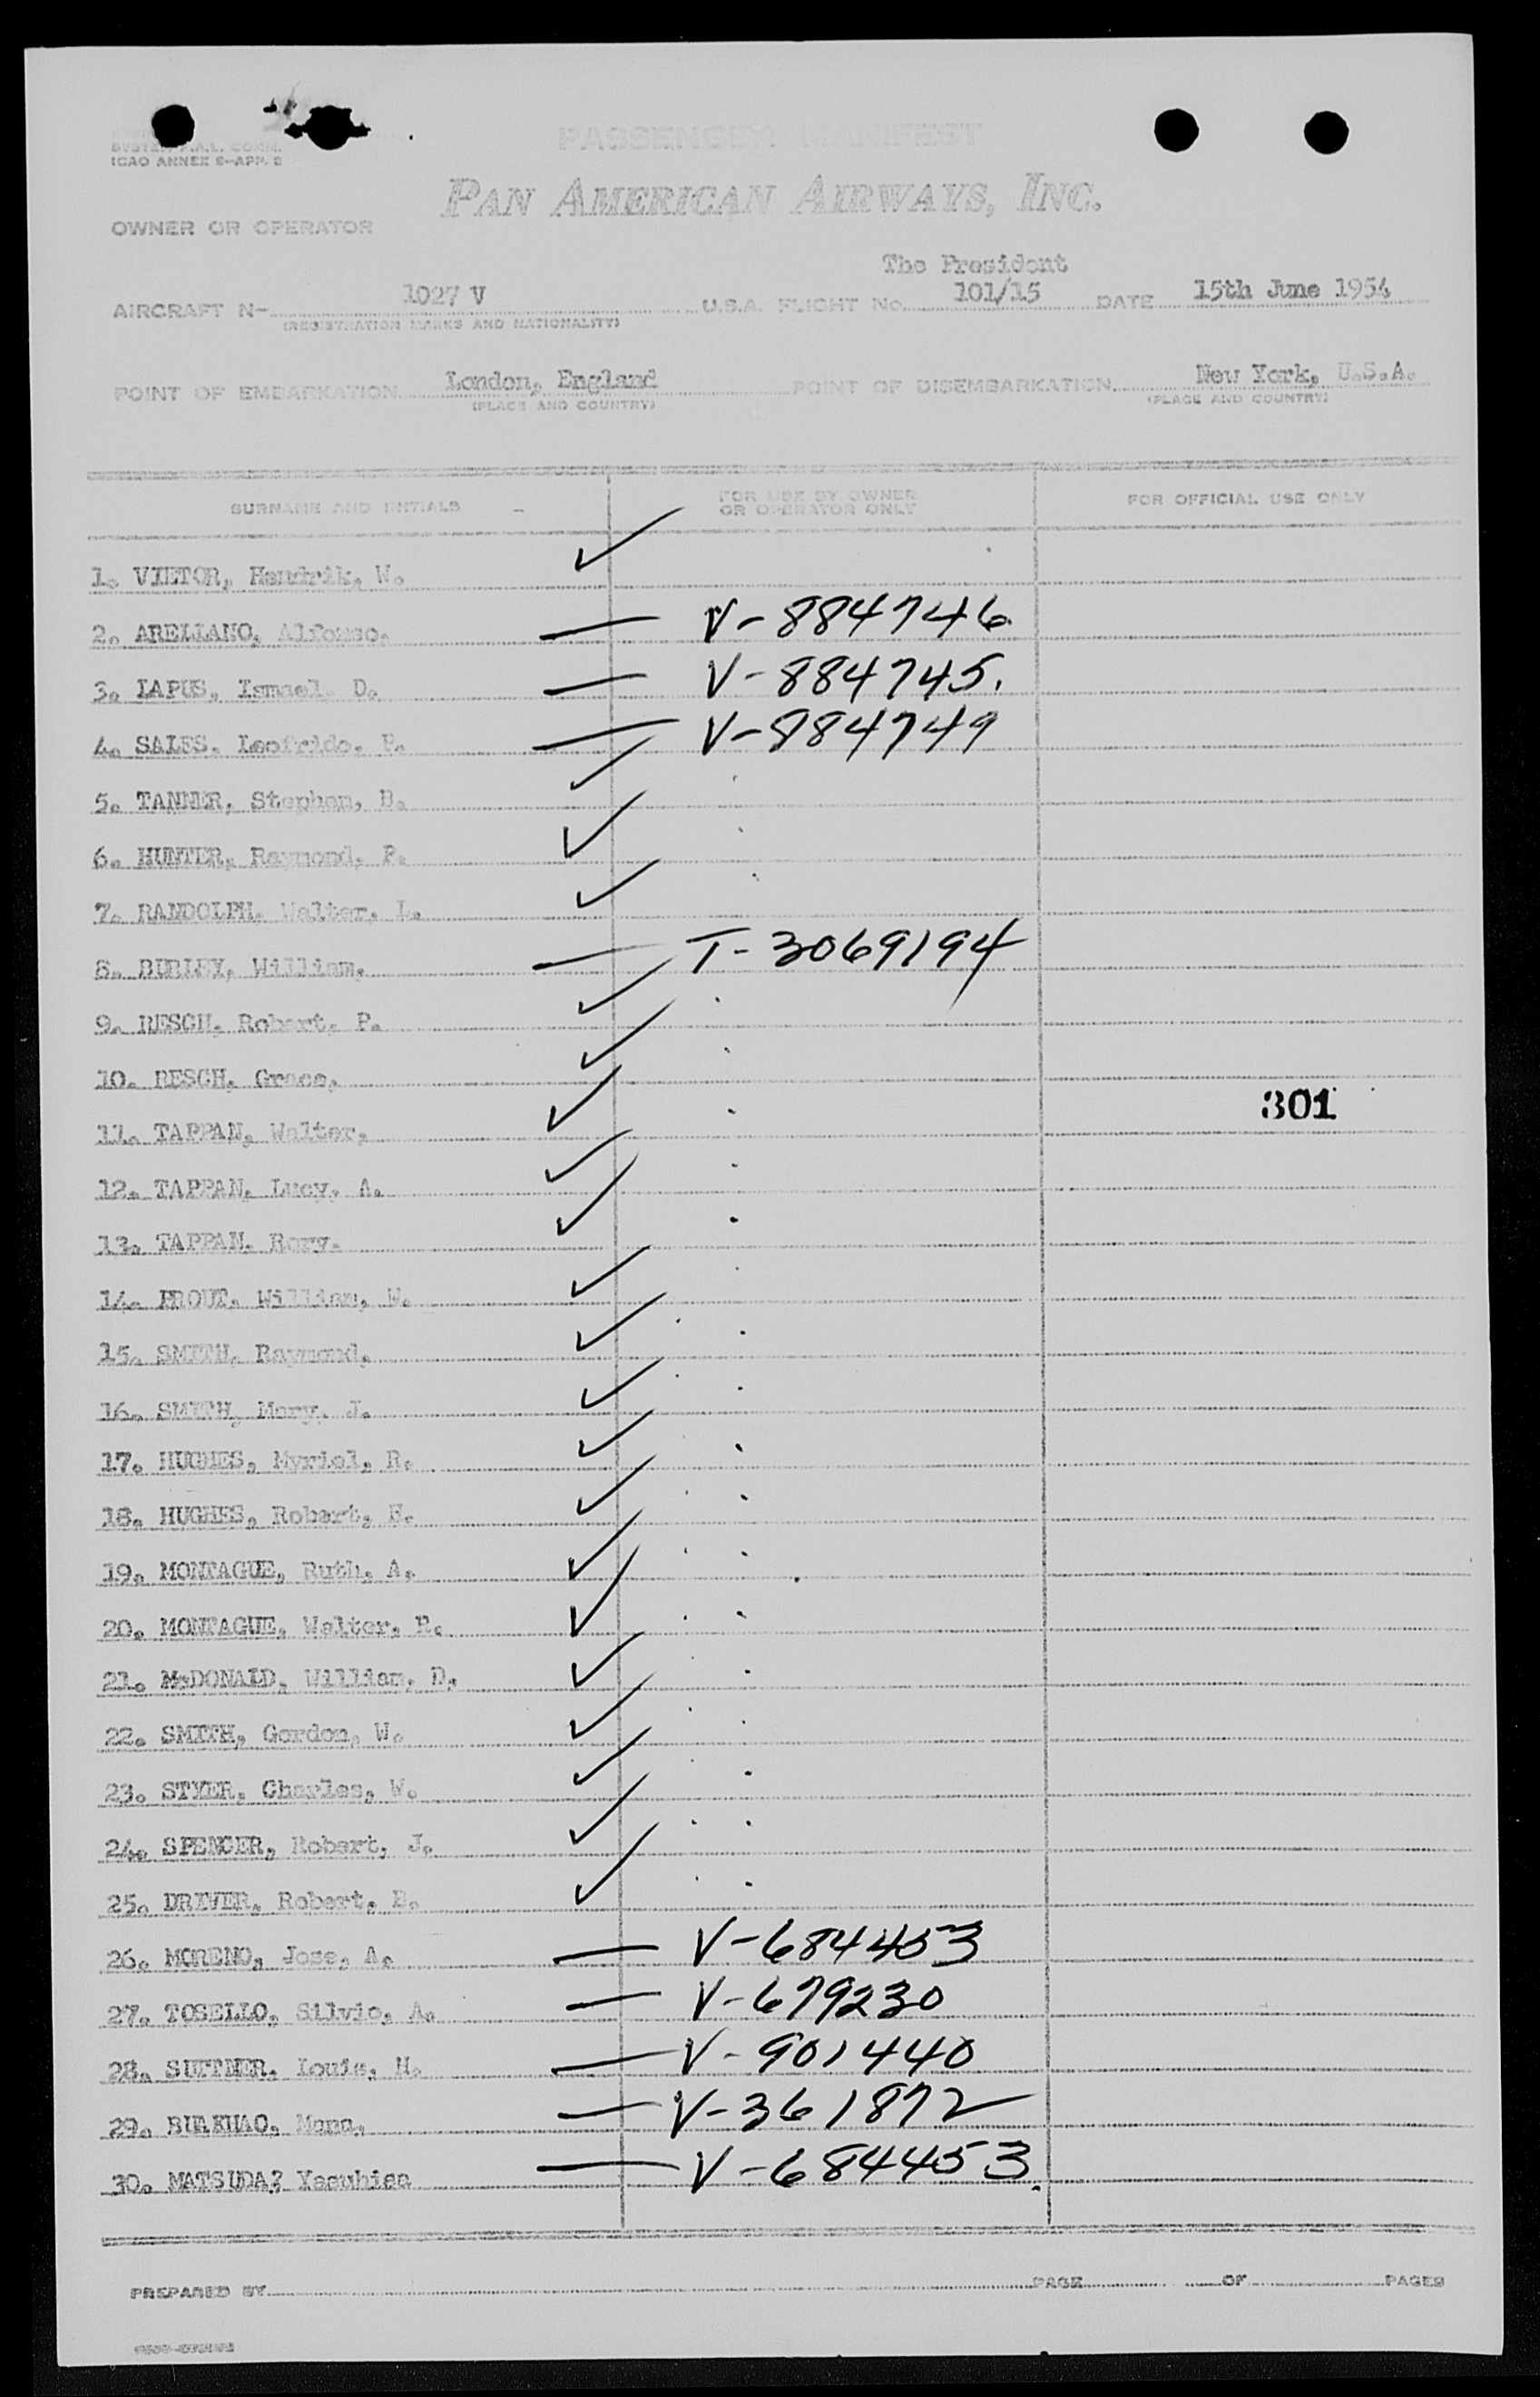 SYSTEM P.A.L. COMM.
ICAO ANNEX 9-APP. 2
PASSENGER MANIFEST
PAN AMERICAN AIRWAYS, INC.
OWNER OR OPERATOR
The President
AIRCRAFT N- 1027 V U.S.A. FLIGHT No. 101/15 DATE 15th June 1954
(REGISTRATION MARKS AND NATIONALITY)
POINT OF EMBARKATION London, England POINT OF DISEMBARKATION New York, U.S.A.
(PLACE AND COUNTRY) (PLACE AND COUNTRY)
SURNAME AND INITIALS - FOR USE BY OWNER OR OPERATOR ONLY FOR OFFICIAL USE ONLY
1. VIETOR, Hendrik, W. ✓
2. ARELLANO, Alfonso. — V-884746.
3. LAPUS, Ismael D. — V-884745.
4. SALES. Leofrido, P. — V-884749
5. TANNER, Stephen, B. ✓
6. HUNTER, Raymond, P. ✓
7. RANDOLPH. Walter, L. ✓
8. BURLEY, William. — T-3069194
9. RESCH. Robert, P. ✓
10. RESCH. Grace. ✓
301
11. TAPPAN, Walter, ✓
12. TAPPAN. Lucy, A. ✓
13. TAPPAN. Rory. ✓
14. PROUT. William, W. ✓
15. SMITH, Raymond. ✓
16. SMITH, Mary. J. ✓
17. HUGHES, Myriel, R. ✓
18. HUGHES, Robert, E. ✓
19. MONTAGUE, Ruth. A. ✓
20. MONTAGUE, Walter, R. ✓
21. McDONALD, William, D. ✓
22. SMITH, Gordon, W. ✓
23. STYER. Charles, W. ✓
24. SPENCER, Robert, J. ✓
25. DRIVER. Robert, B. ✓
26. MORENO, Jose, A. — V-684453
27. TOSELLO, Silvio, A. — V-679230
28. SUTTNER. Louis, H. — V-901440
29. Mona, — V-361872
30. MATSUDA, Yasuhisa — V-684453.
PREPARED BY PAGE OF PAGES